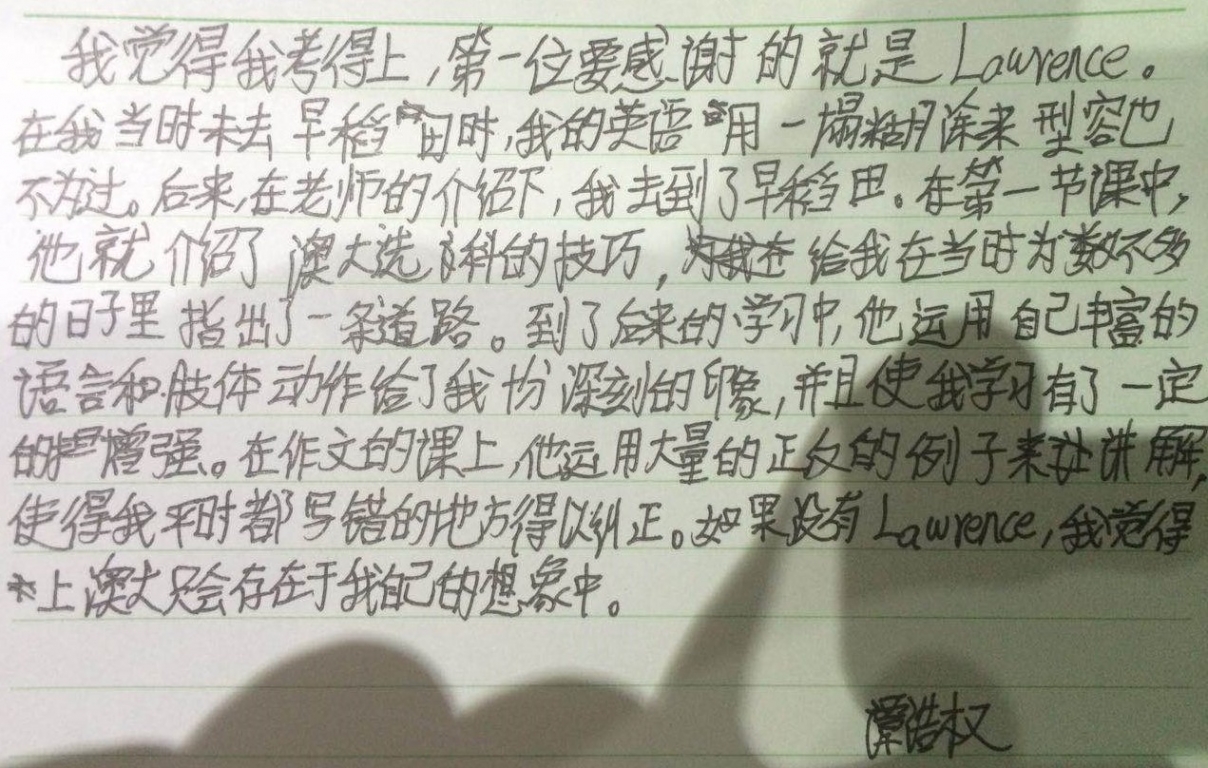 我觉得我考得上,第一位要感谢的就是Lawrence。
在我当时未去早稻田时,我的英语用一塌糊涂来型容也
不为过。后来,在老师的介绍下,我去到了早稻田。在第一节课中,
他就介绍了澳大选科的技巧,给我在当时为数不多
的日子里指出了一条道路。到了后来的学习中,他运用自己丰富的
语言和肢体动作给了我份深刻的印象,并且使我学习有了一定
的增强。在作文的课上,他运用大量的正反的例子来讲解,
使得我平时都写错的地方得以纠正。如果没有Lawrence,我觉得
上澳大只会存在于我自己的想象中。
谭浩权